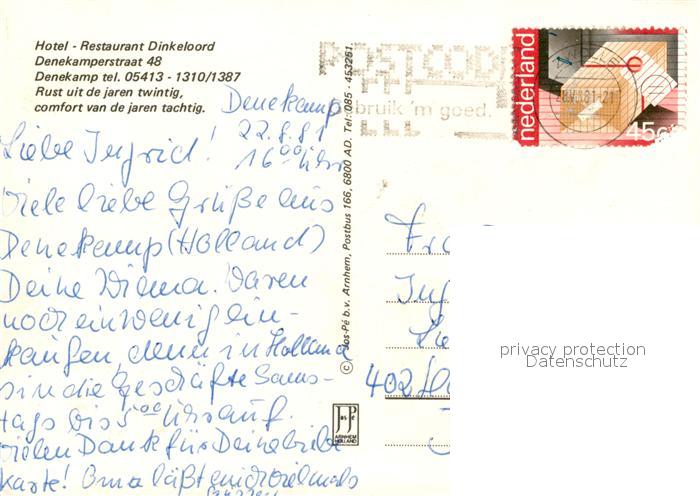 Hotel - Restaurant Dinkeloord
Denekamperstraat 48
Denekamp tel. 05413 - 1310/1387
Rust uit de jaren twintig,
comfort van de jaren tachtig.
Denekamp
22.8.81
16⁰⁰ Uhr
Liebe Ingrid!
Viele liebe Grüße aus
Denekamp (Holland)
Deine Wilma. Waren
noch ein wenig ein-
kaufen, denn in Holland
sind die Geschäfte Sams-
tags bis 5⁰⁰ Uhr auf.
Vielen Dank für Deine liebe
Karte! Oma läßt dich vielmals
grüßen
© Jos-Pé b.v. Arnhem, Postbus 166, 6800 AD. Tel: 085 - 453251.
Jos Pé
ARNHEM
HOLLAND
POSTCODE
bruik 'm goed.
nederland
45c
Fr
Ing
402
privacy protection
Datenschutz